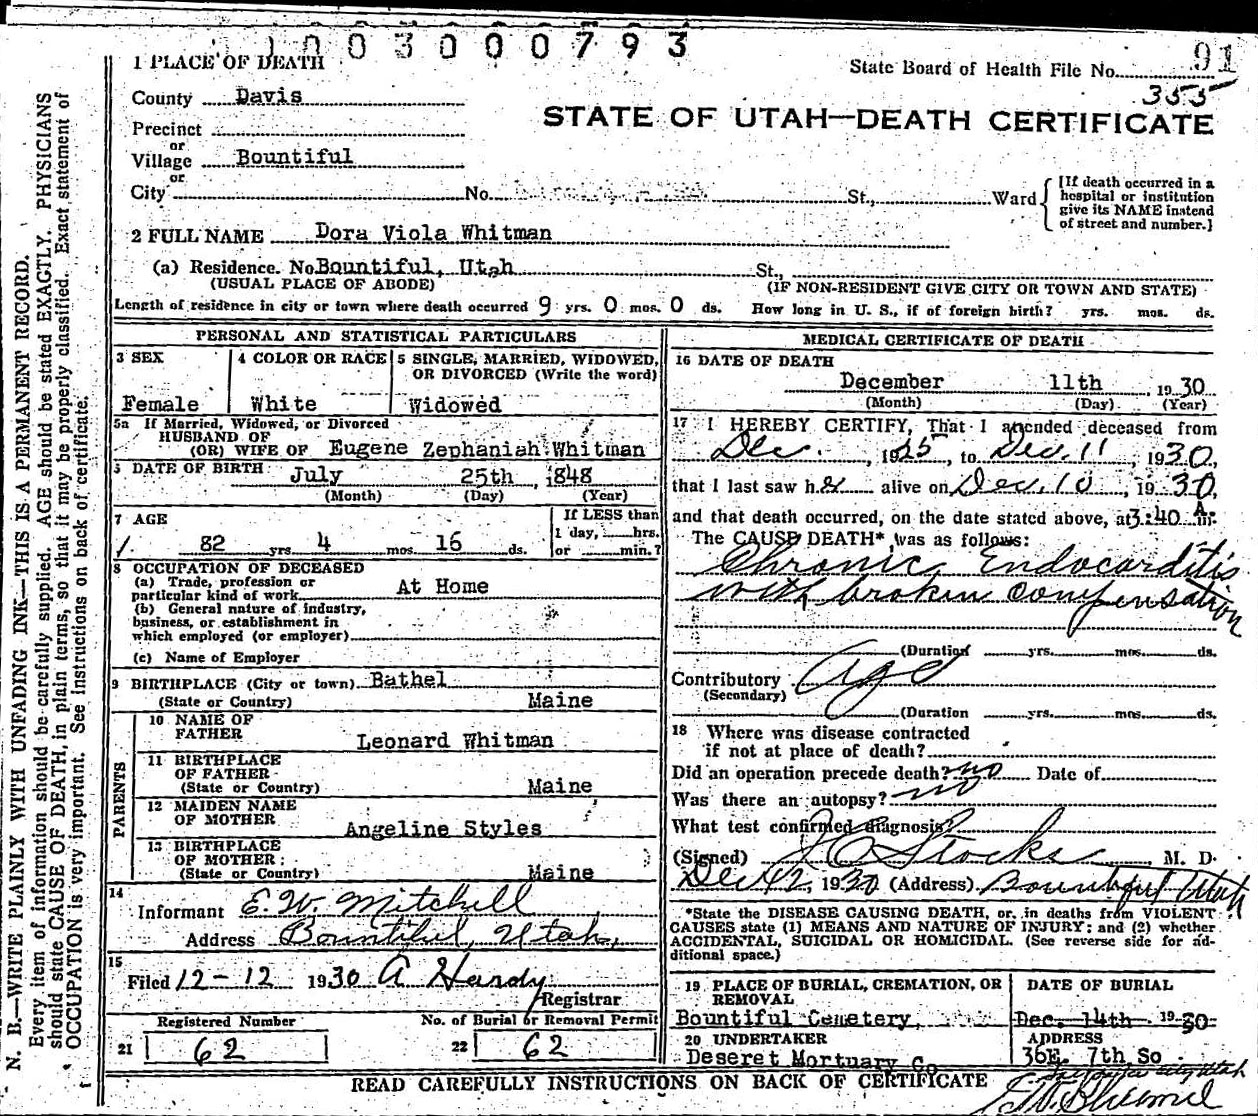 1003000793
91
1 PLACE OF DEATH
State Board of Health File No. 355
County Davis
STATE OF UTAH—DEATH CERTIFICATE
Precinct
or
Village Bountiful
or
City No. St., Ward
[If death occurred in a
hospital or institution
give its NAME instead
of street and number.]
2 FULL NAME Dora Viola Whitman
(a) Residence. No. Bountiful, Utah St.,
(USUAL PLACE OF ABODE) (IF NON-RESIDENT GIVE CITY OR TOWN AND STATE)
Length of residence in city or town where death occurred 9 yrs. 0 mos. 0 ds. How long in U. S., if of foreign birth? yrs. mos. ds.
PERSONAL AND STATISTICAL PARTICULARS
3 SEX
Female
4 COLOR OR RACE
White
5 SINGLE, MARRIED, WIDOWED,
OR DIVORCED (Write the word)
Widowed
5a If Married, Widowed, or Divorced
HUSBAND OF
(OR) WIFE OF Eugene Zephaniah Whitman
DATE OF BIRTH July 25th, 1848
(Month) (Day) (Year)
7 AGE
82 yrs. 4 mos. 16 ds.
If LESS than
1 day, hrs.
or min.?
8 OCCUPATION OF DECEASED
(a) Trade, profession or
particular kind of work At Home
(b) General nature of industry,
business, or establishment in
which employed (or employer)
(c) Name of Employer
9 BIRTHPLACE (City or town) Bathel
(State or Country) Maine
PARENTS
10 NAME OF
FATHER Leonard Whitman
11 BIRTHPLACE
OF FATHER
(State or Country) Maine
12 MAIDEN NAME
OF MOTHER Angeline Styles
13 BIRTHPLACE
OF MOTHER
(State or Country) Maine
14
Informant E. W. Mitchell
Address Bountiful, Utah,
15
Filed 12-12 1930 A Hardy
Registrar
Registered Number No. of Burial or Removal Permit
21 62 22 62
MEDICAL CERTIFICATE OF DEATH
16 DATE OF DEATH
December 11th 1930
(Month) (Day) (Year)
17 I HEREBY CERTIFY, That I attended deceased from
Dec., 1925, to Dec. 11, 1930,
that I last saw her alive on Dec. 10, 1930,
and that death occurred, on the date stated above, at 3:40 A. m.
The CAUSE DEATH* was as follows:
Chronic Endocarditis
with broken compensation
(Duration yrs. mos. ds.
Contributory Age
(Secondary)
(Duration yrs. mos. ds.
18 Where was disease contracted
if not at place of death?
Did an operation precede death? no Date of
Was there an autopsy? no
What test confirmed diagnosis?
(Signed) Stocks M. D.
Dec 12, 1930 (Address) Bountiful Utah
*State the DISEASE CAUSING DEATH, or, in deaths from VIOLENT
CAUSES state (1) MEANS AND NATURE OF INJURY: and (2) whether
ACCIDENTAL, SUICIDAL OR HOMICIDAL. (See reverse side for ad-
ditional space.)
19 PLACE OF BURIAL, CREMATION, OR
REMOVAL
Bountiful Cemetery,
DATE OF BURIAL
Dec. 14th 1930
20 UNDERTAKER
Deseret Mortuary Co
ADDRESS
36E. 7th So
READ CAREFULLY INSTRUCTIONS ON BACK OF CERTIFICATE
N. B.—WRITE PLAINLY WITH UNFADING INK—THIS IS A PERMANENT RECORD.
Every item of information should be carefully supplied. AGE should be stated EXACTLY. PHYSICIANS
should state CAUSE OF DEATH, in plain terms, so that it may be properly classified. Exact statement of
OCCUPATION is very important. See instructions on back of certificate.